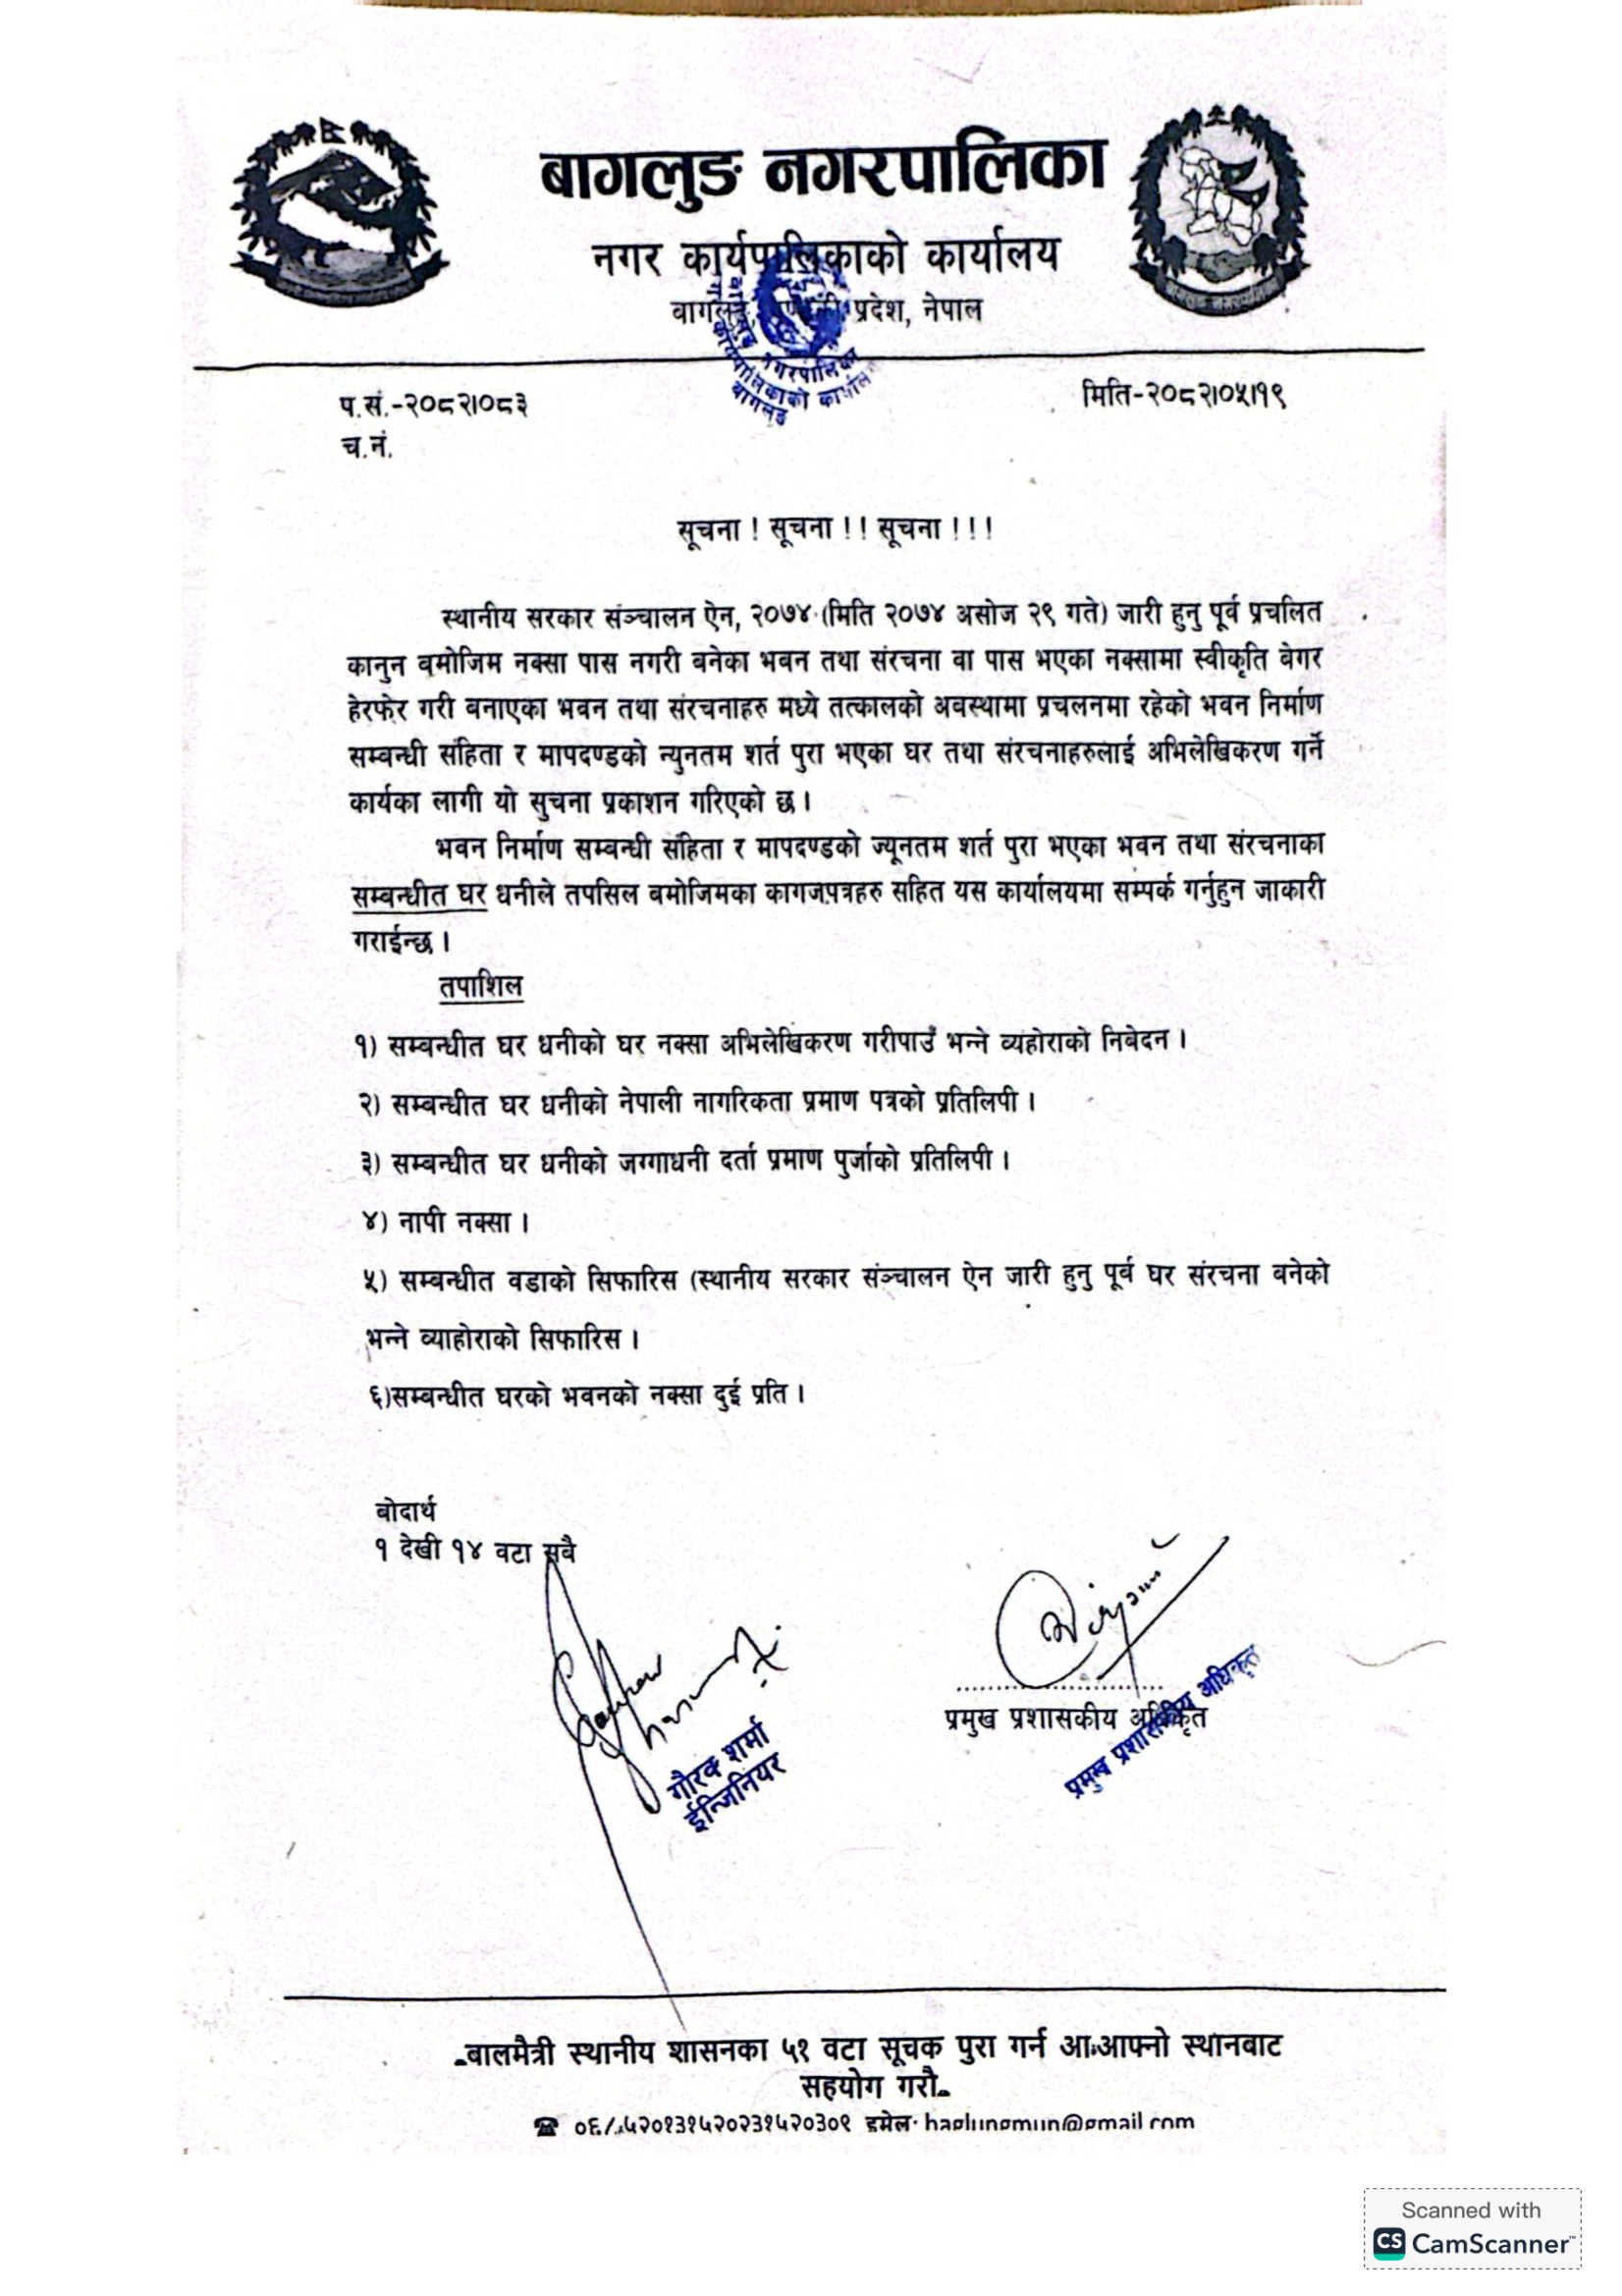 बागलुङ नगरपालिका
नगर कार्यपालिकाको कार्यालय
बागलुङ, गण्डकी प्रदेश, नेपाल
नगरपालिका
कार्यपालिकाको कार्याल
बागलुङ
प.सं.-२०८२।०८३
मिति-२०८२।०५।१९
च.नं.
सूचना ! सूचना ! ! सूचना ! ! !
स्थानीय सरकार संञ्चालन ऐन, २०७४ (मिति २०७४ असोज २९ गते) जारी हुनु पूर्व प्रचलित
कानुन बमोजिम नक्सा पास नगरी बनेका भवन तथा संरचना वा पास भएका नक्सामा स्वीकृति वेगर
हेरफेर गरी बनाएका भवन तथा संरचनाहरु मध्ये तत्कालको अवस्थामा प्रचलनमा रहेको भवन निर्माण
सम्बन्धी संहिता र मापदण्डको न्युनतम शर्त पुरा भएका घर तथा संरचनाहरुलाई अभिलेखिकरण गर्ने
कार्यका लागी यो सुचना प्रकाशन गरिएको छ ।
भवन निर्माण सम्बन्धी संहिता र मापदण्डको ज्यूनतम शर्त पुरा भएका भवन तथा संरचनाका
सम्बन्धीत घर धनीले तपसिल बमोजिमका कागजपत्रहरु सहित यस कार्यालयमा सम्पर्क गर्नुहुन जाकारी
गराईन्छ ।
तपाशिल
१) सम्बन्धीत घर धनीको घर नक्सा अभिलेखिकरण गरीपाउँ भन्ने व्यहोराको निबेदन ।
२) सम्बन्धीत घर धनीको नेपाली नागरिकता प्रमाण पत्रको प्रतिलिपी ।
३) सम्बन्धीत घर धनीको जग्गाधनी दर्ता प्रमाण पुर्जाको प्रतिलिपी ।
४) नापी नक्सा ।
५) सम्बन्धीत वडाको सिफारिस (स्थानीय सरकार संञ्चालन ऐन जारी हुनु पूर्व घर संरचना बनेको
भन्ने व्याहोराको सिफारिस ।
६)सम्बन्धीत घरको भवनको नक्सा दुई प्रति ।
बोदार्थ
१ देखी १४ वटा सबै
गौरव शर्मा
ईन्जिनियर
प्रमुख प्रशासकीय अधिकृत
प्रमुख प्रशासकीय अधिकृत
बालमैत्री स्थानीय शासनका ५१ वटा सूचक पुरा गर्न आ-आफ्नो स्थानबाट
सहयोग गरौ
☎ ०६८-५२०१३१५२०२३१५२०३०१ इमेल: baglungmun@gmail.com
Scanned with
CS CamScanner™